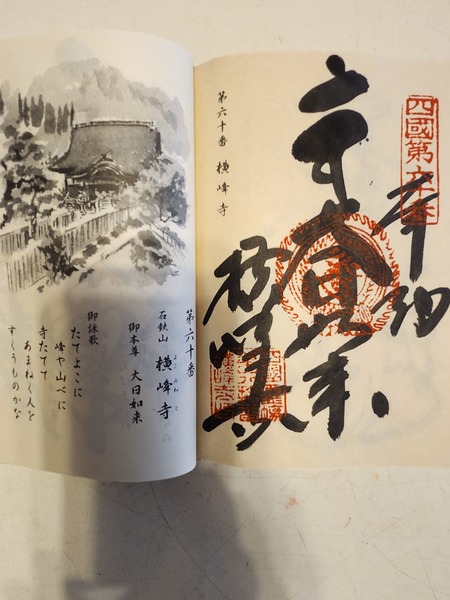 四國第六十番
奉納
横峰寺
第六十番 横峰寺
第六十番
石鉄山 横峰寺
よこみねじ
御本尊 大日如来
御詠歌
たてよこに
峰や山べに
寺たてて
あまねく人を
すくうものかな